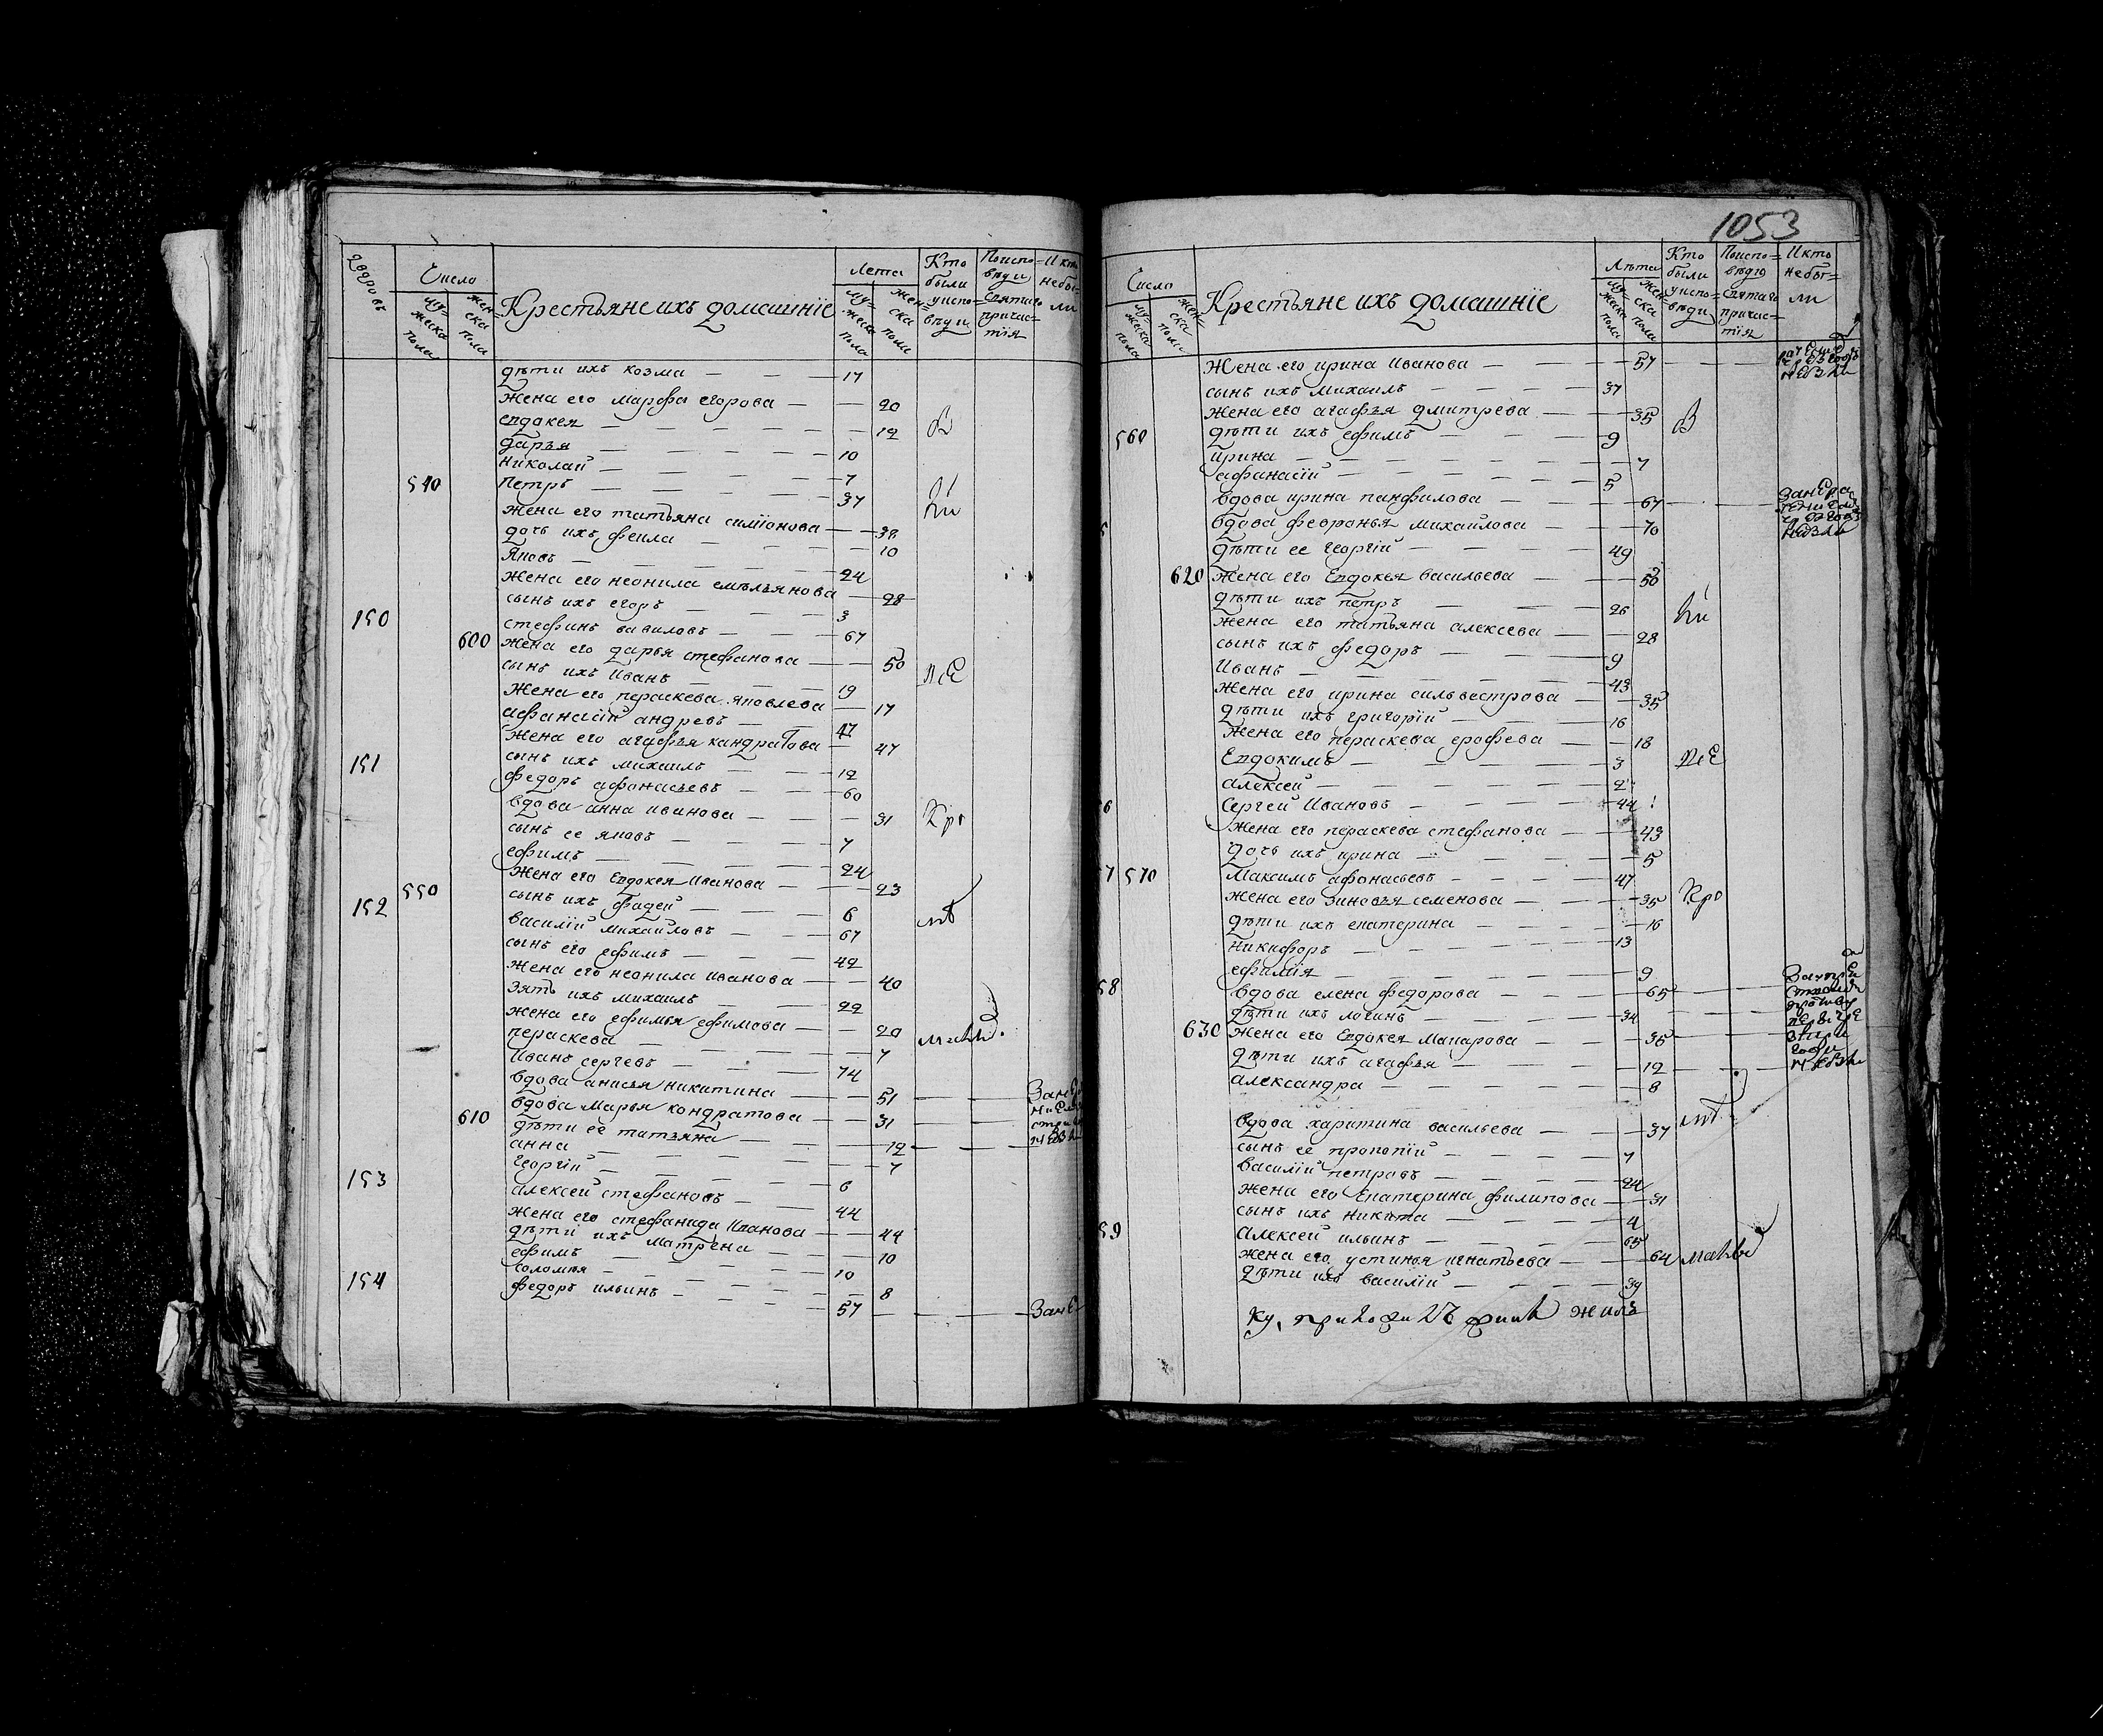 1053
дворовъ
Число
Крестьяне ихъ домашнїе
Лета
Кто были у исповѣди
По исповѣди святаго причастїя
И кто небыли
мужеска пола
женска пола
мужеска пола
женска пола
дѣти ихъ козма 17
жена его марфа егорова 20
евдокея 12
дарья 10
николай 7
540 петръ 37
жена его татьяна симїонова 38
дочь ихъ фекла 10
яковъ 24
жена его неонила емельянова 28
сынъ ихъ егоръ 3
150 стефанъ вавиловъ 67
600 жена его дарья стефанова 50
сынъ ихъ иванъ 19
жена его пераскева яковлева 17
афанасїй андревъ 47
жена его агафья кандратова 47
151 сынъ ихъ михаилъ 12
федоръ афонасьевъ 60
вдова анна иванова 31
сынъ ее яковъ 7
ефимъ 24
жена его евдокея иванова 23
550 сынъ ихъ фадей 6
152 василїй михайловъ 67
сынъ его ефимъ 42
жена его неонила иванова 40
зять ихъ михаилъ 22
жена его ефимья ефимова 20
пераскева 7
иванъ сергевъ 74
вдова анисья никитина 51
610 вдова марья кондратова 31
дѣти ее татьяна 12
анна 7
георгїй 6
153 алексей стефановъ 44
жена его стефанида иванова 44
дѣти ихъ матрена 10
ефимъ 10
соломия 8
154 федоръ ильинъ 57
Число
Крестьяне ихъ домашнїе
Лѣта
Кто были у исповѣди
По исповѣдию святаго причастїя
И кто небыли
мужеска пола
женска пола
мужеска пола
женска пола
жена его ирина иванова 57
сынъ ихъ михаилъ 37
жена его агафья дмитрева 35
560 дѣти ихъ ефимъ 9
ирина 7
афанасїй 5
вдова ирина панфилова 67
вдова февронья михайлова 70
дѣти ее георгїй 49
620 жена его евдокея васильева 50
дѣти ихъ петръ 26
жена его татьяна алексева 28
сынъ ихъ федоръ 9
иванъ 43
жена его ирина сильвестрова 35
дѣти ихъ григорїй 16
жена его пераскева ерофева 18
евдокимъ 3
алексей 2
6 сергей ивановъ 44
жена его пераскева стефанова 43
дочь ихъ ирина 5
7 570 максимъ афонасьевъ 47
жена его зиновья семенова 35
дѣти ихъ екатерина 16
никифоръ 13
ефимїя 9
58 вдова елена федорова 65
дѣти ихъ логинъ 34
630 жена его евдокея макарова 36
дѣти ихъ агафья 12
александра 8
вдова харитина васильева 37
сынъ ее прокопїй 7
василїй петровъ 24
жена его екатерина филипова 31
сынъ ихъ никита 4
59 алексей ильинъ 65
жена его устинья игнатьева 64
дѣти ихъ василїй 39